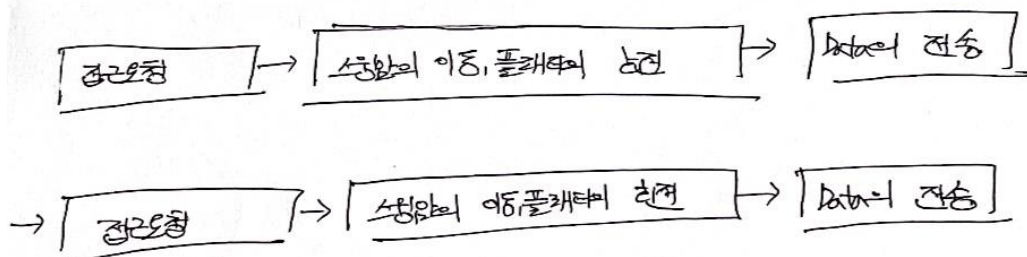 접근요청 → 스윙암의 이동, 플래터의 회전 → Data의 전송
→ 접근요청 → 스윙암의 이동, 플래터의 회전 → Data의 전송